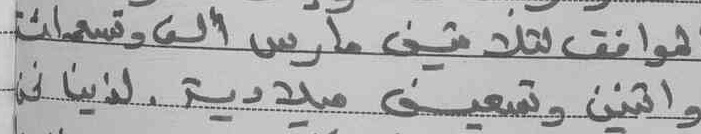 الموافق لثلاثين مارس ألف وتسعمائة
واثنين وتسعين ميلادية. لدينا نحن